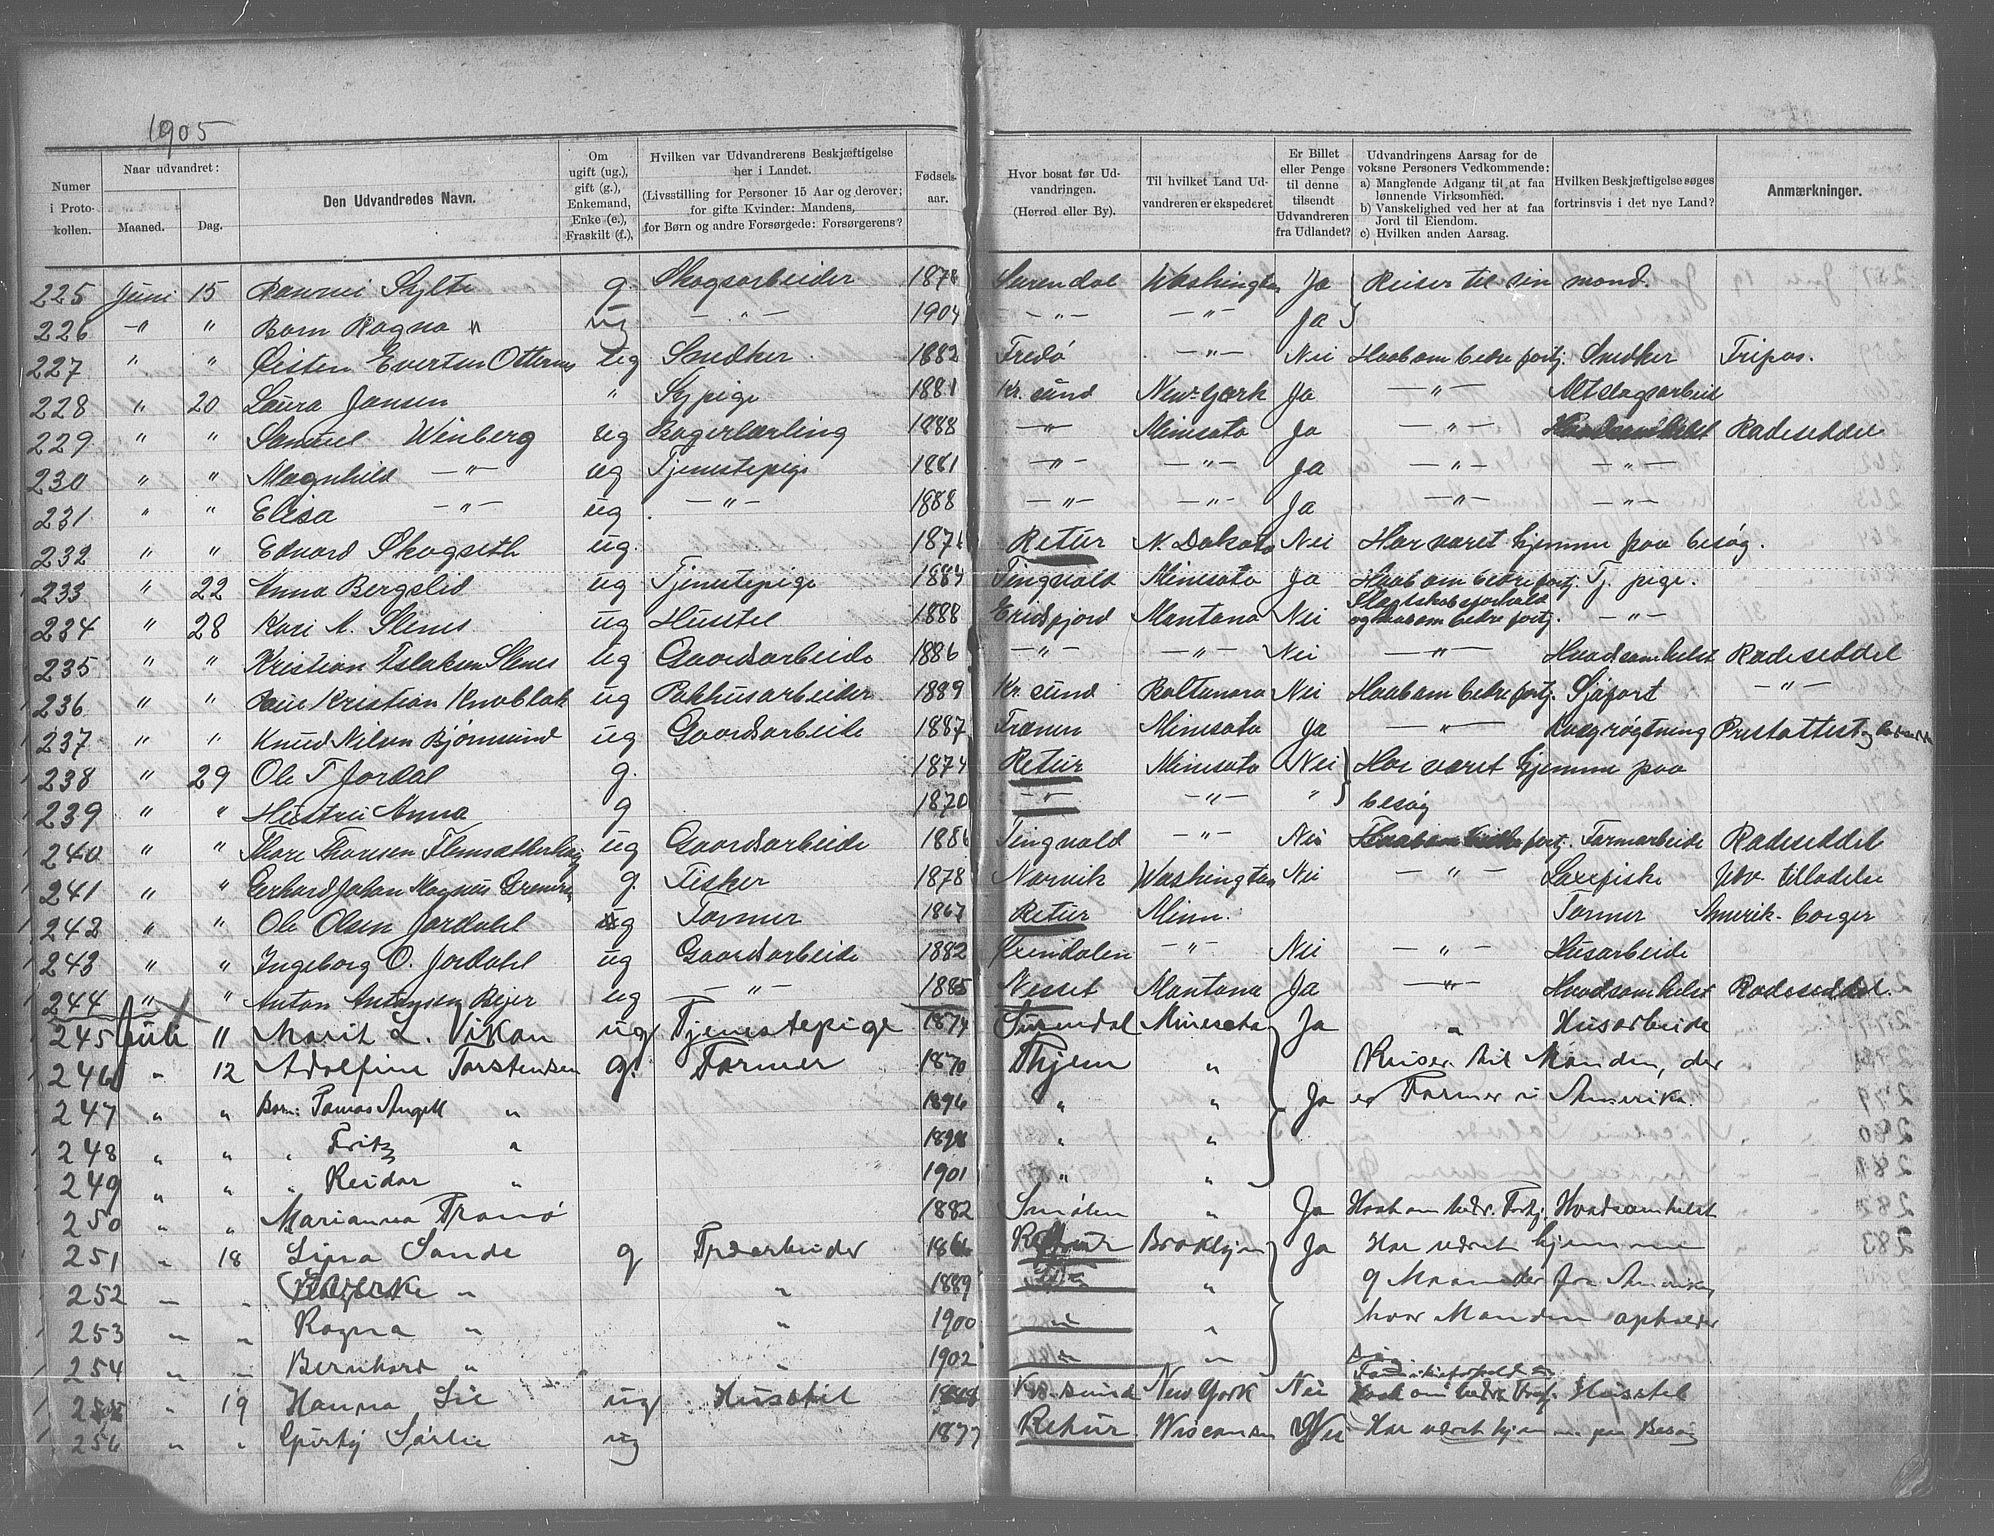 1905
Numer i Protokollen.
Naar udvandret:
Maaned.
Dag.
Den Udvandredes Navn.
Om ugift (ug.), gift (g.), Enkemand, Enke (e.), Fraskilt (f.),
Hvilken var Udvandrerens Beskjæftigelse her i Landet.
(Livsstilling for Personer 15 Aar og derover; for gifte Kvinder: Mandens, for Børn og andre Forsørgede: Forsørgerens?
Fødsels-aar.
Hvor bosat før Udvandringen.
(Herred eller By).
Til hvilket Land Udvandreren er ekspederet
Er Billet eller Penge til denne tilsendt Udvandreren fra Udlandet?
Udvandringens Aarsag for de voksne Personers Vedkommende:
a) Manglende Adgang til at faa lønnende Virksomhed.
b) Vanskelighed ved her at faa Jord til Eiendom.
c) Hvilken anden Aarsag.
Hvilken Beskjæftigelse søges fortrinsvis i det nye Land?
Anmærkninger.
225 Juni 15 Sylte g. Skogsarbeider 1878 Surendal Washington Ja Reiser til sin mand.
226 -"- " Barn Ragna " ug -"- 1904 -"- -"- Ja
227 " " Øisten Evertsen ug Snedker 1882 Fredø -"- Nei Haab om bedre fortj. Snedker Fripas.
228 " 20 Laura Jansen " Sypige 1881 Kr.sund New-York Ja -"- Altslagsarbeid
229 " " Samuel Winberg ug Bagerlærling 1888 -"- Minesota Ja -"- Hvadsomhelst Radeseddel
230 " " Magnhild -"- ug Tjenestepige 1881 -"- -"- Ja -"- -"-
231 " " Elisa -"- ug -"- 1888 -"- -"- Ja -"- -"-
232 " " Edvard Skogseth ug. Retur N. Dakota Nei Har været hjemme paa besøg.
233 " 22 Anna Bergslid ug Tjenestepige 1884 Tingvold Minesota Ja Haab om bedre fortj. Tj. pige.
234 " 28 Kari A. Slenes ug Hustel 1888 Eridfjord Mantana Nei Slægtskabsforhold og Haab om bedre fortj. -"-
235 " " Kristian Aslaksen Slenes ug Gaardsarbeide 1886 -"- -"- Nei -"- Hvadsomhelst Radeseddel
236 " " Kristian Knoblok ug Pakhusarbeider 1889 Kr.sund Nei Haab om bedre fortj. Sjøfart -"-
237 " " Knud Nilsen Bjørnsund ug Gaardsarbeide 1887 Frænen Minesota Ja -"- Kvægrøgtning Prestattest og
238 " 29 Ole T Jordal g. 1874 Retur Minesota Nei Har været hjemme paa
239 " " Hustru Anna g 1870 -"- -"- " besøg
240 " " Thore Thoresen ug Gaardsarbeide 1886 Tingvold -"- Nei Haab om bedre fortj. Farmarbeide Radeseddel
241 " " Gerhard Johan Magnus g. Fisker 1878 Narvik Washington Nei -"- Laxefiske tilladelse
242 " " Ole Olsen Jordahl ug Farmer 1867 Retur Minn. Farmer Amerik. borger
243 " " Ingeborg O. Jordahl ug Gaardsarbeide 1882 -"- Nei -"- Husarbeide
244 " " Anton Antonsen Bejer ug -"- 1885 Nesset Mantana Ja -"- Hvadsomhelst Radeseddel.
245 Juli 11 Marit L. Vikan ug Tjenestepige 1874 Surendal Minesota Ja " Husarbeide
246 " 12 Adolfine Torstensen g. Farmer 1870 Minesota Reiser til Manden, der
247 " " Barn: Tomas Angell " 1896 " " Ja er Farmer i Amerika.
248 " " " Fritz " 1898 " "
249 " " " Reidar " 1901 " "
250 " " Marianna Tranø 1882 Smølen " Ja Haab om bedre Fortj. Hvadsomhelst
251 " 18 Lina Sande g Træarbeider 1866 Retur Brooklyn Ja Har været hjemme
252 " " " " 1889 " 9 Maaneder fra Amerika
253 " " Ragna " " 1900 " " hvor Manden opholder
254 " " Bernhard " " 1902 " " sig
255 " 19 Hanna Lie ug Husstel Kr.sund New York Nei Haab om bedre Fortj. Husstel
256 " " ug 1877 Retur Wisconsin Nei Har været hjemme paa Besøg